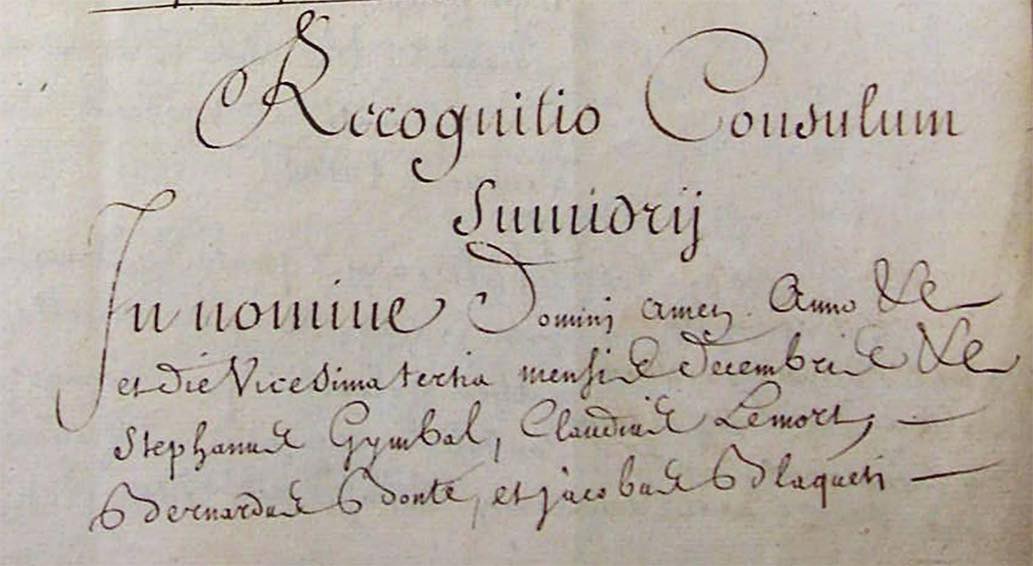 Recognitio Consulum
Sumidrij
In nomine Domini amen. Anno &c
et die Vicesima tertia mensis decembris &c
Stephanus Gymbal, Claudius Lemort,
Bernardus Bonte, et jacobus Blaqueti